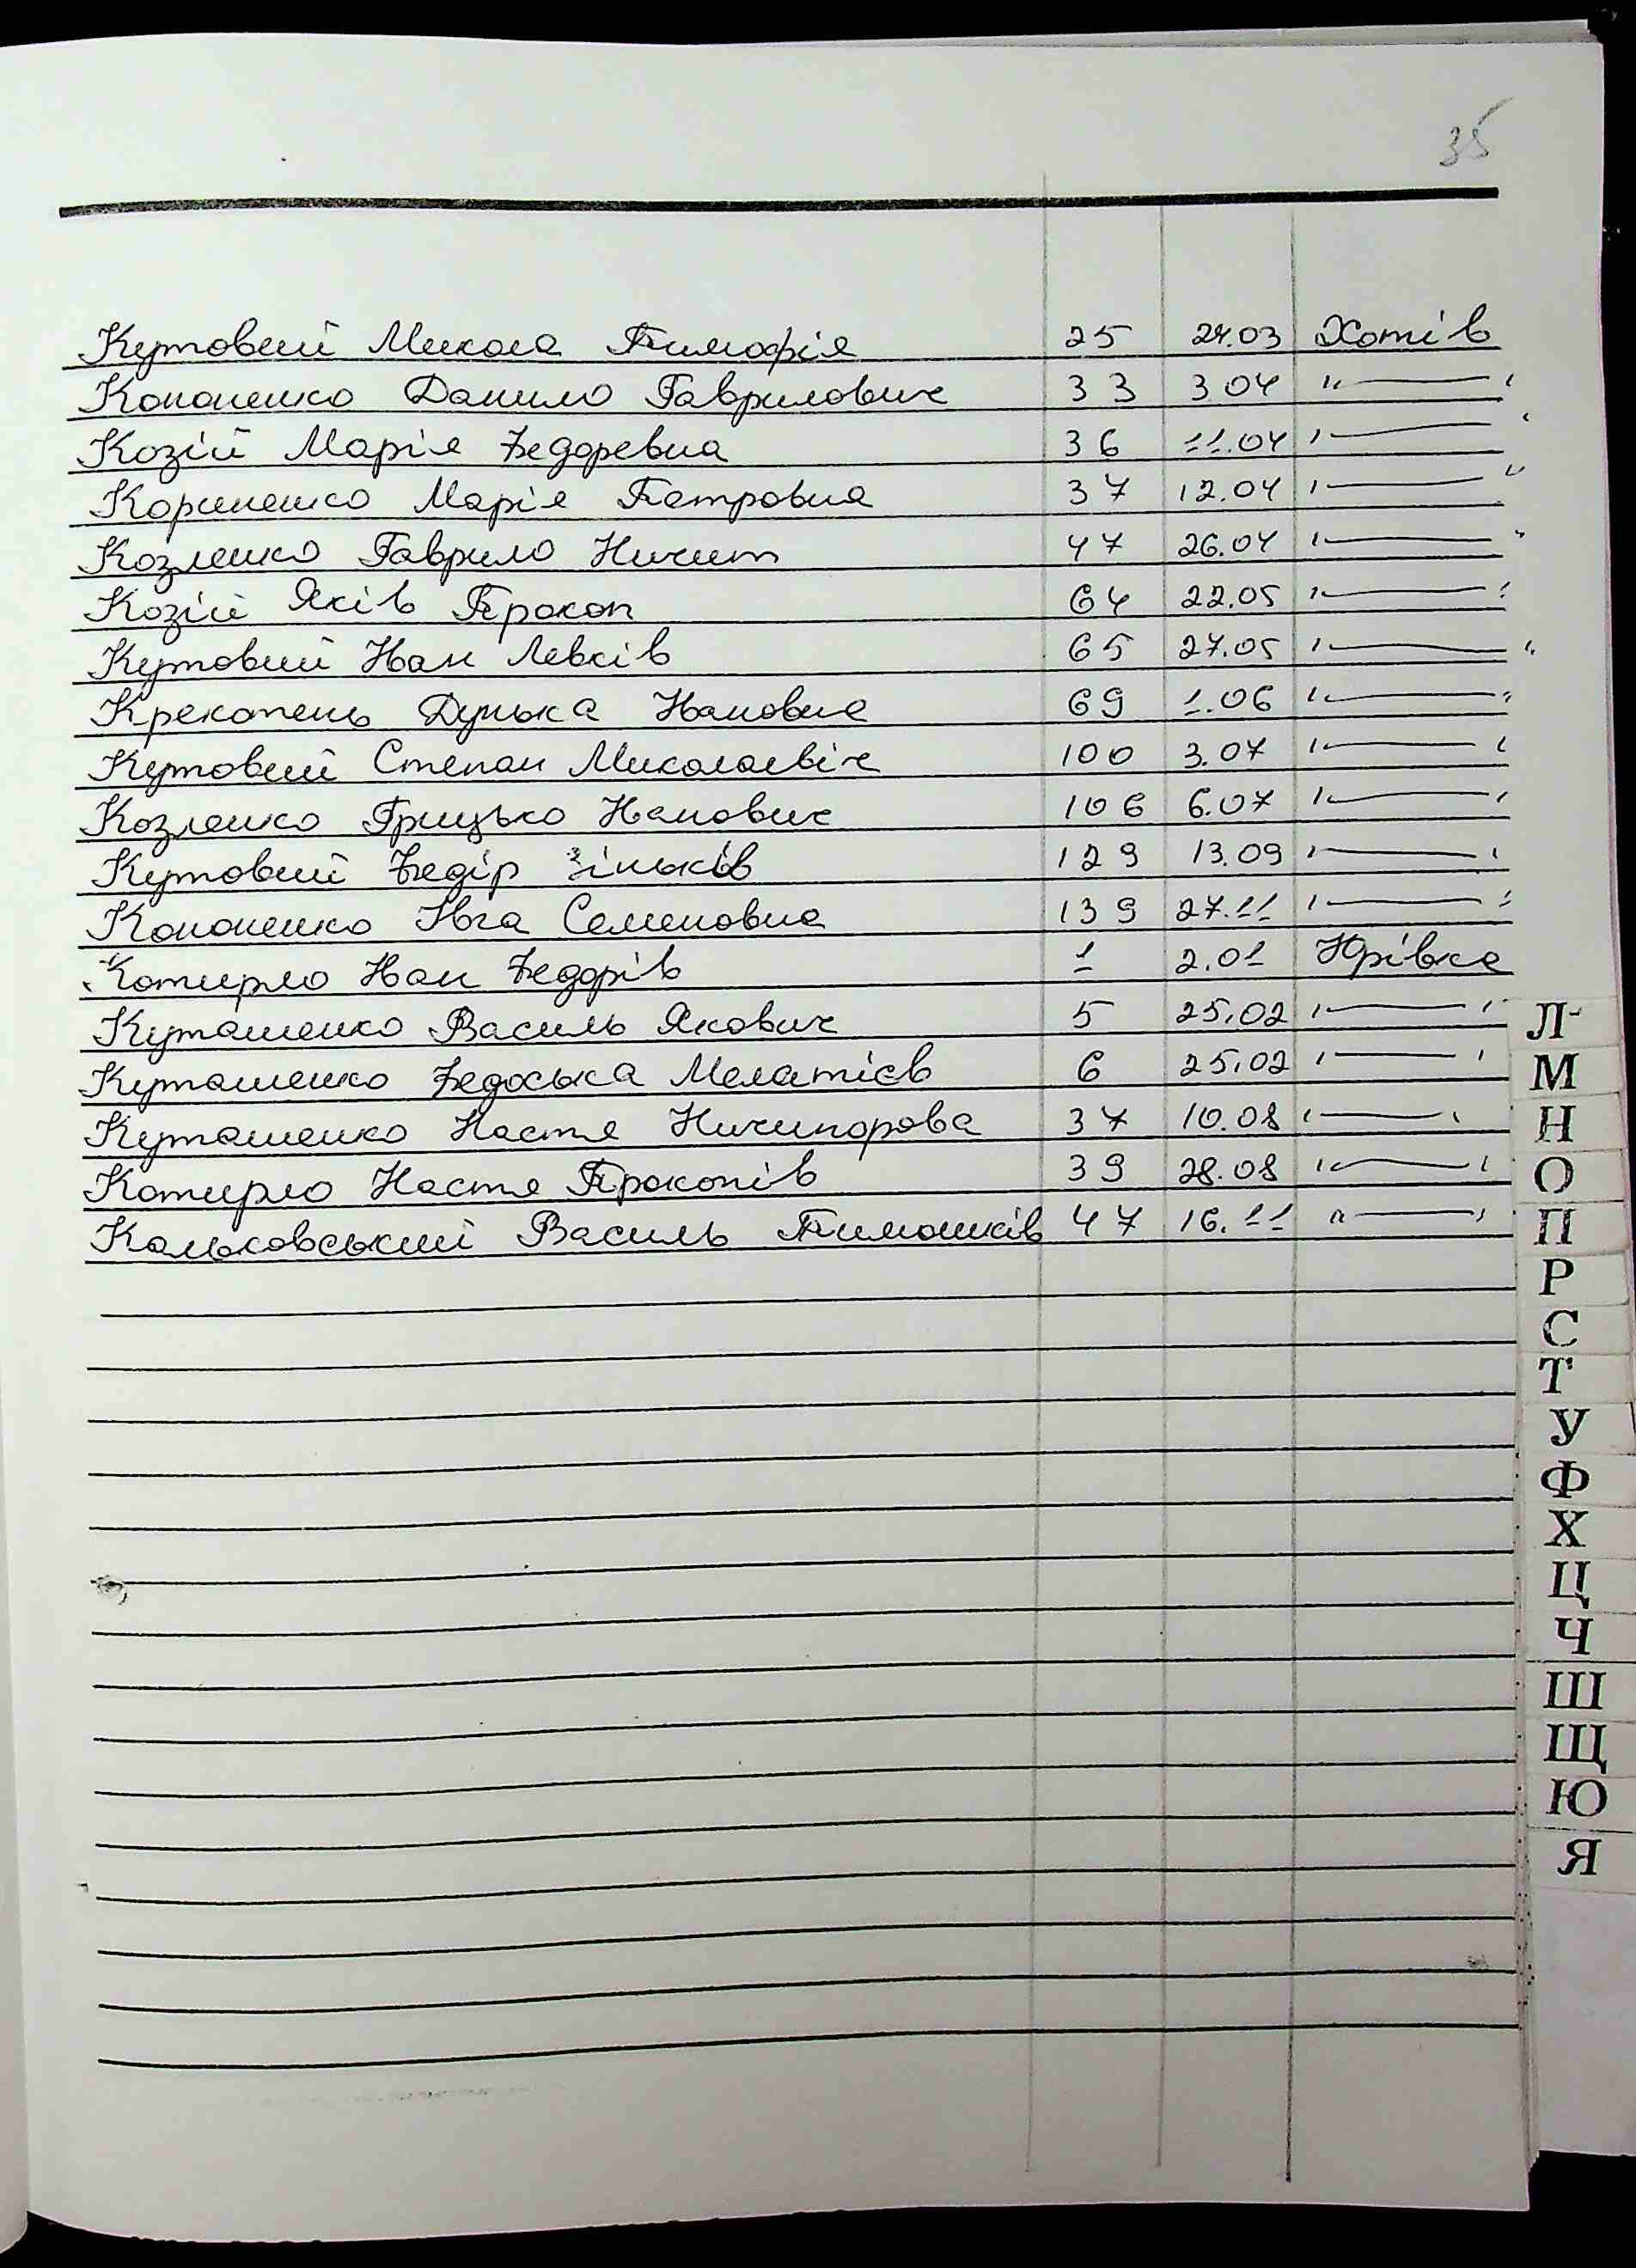 35
Кутовий Микола Тимофія 25 24.03 Хотів
Кононенко Данило Гаврилович 33 3 04 "—"
Козій Марія Федоревна 36 11.04 "—"
Корниенко Марія Петровна 37 12.04 "—"
Козленко Гаврило Ничит 47 26.04 "—"
Козій Яків Прокоп 64 22.05 "—"
Кутовий Иван Левків 65 27.05 "—"
Крекотень Дунька Ивановна 69 1.06 "—"
Кутовий Степан Миколаєвіч 100 3.07 "—"
Козленко Грицько Иванович 106 6.07 "—"
Кутовий Федір Зіньків 129 13.09 "—"
Кононенко Ивга Семеновна 139 27.11 "—"
Котирло Иван Федорів 1 2.01 Юрівка
Куташенко Василь Якович 5 25.02 "—"
Куташенко Федоська Мелатієв 6 25.02 "—"
Куташенко Настя Ничипорова 37 10.08 "—"
Котирло Настя Прокопів 39 28.08 "—"
Кальковський Василь Тимошків 47 16.11 "—"
Л
М
Н
О
П
Р
С
Т
У
Ф
Х
Ц
Ч
Ш
Щ
Ю
Я